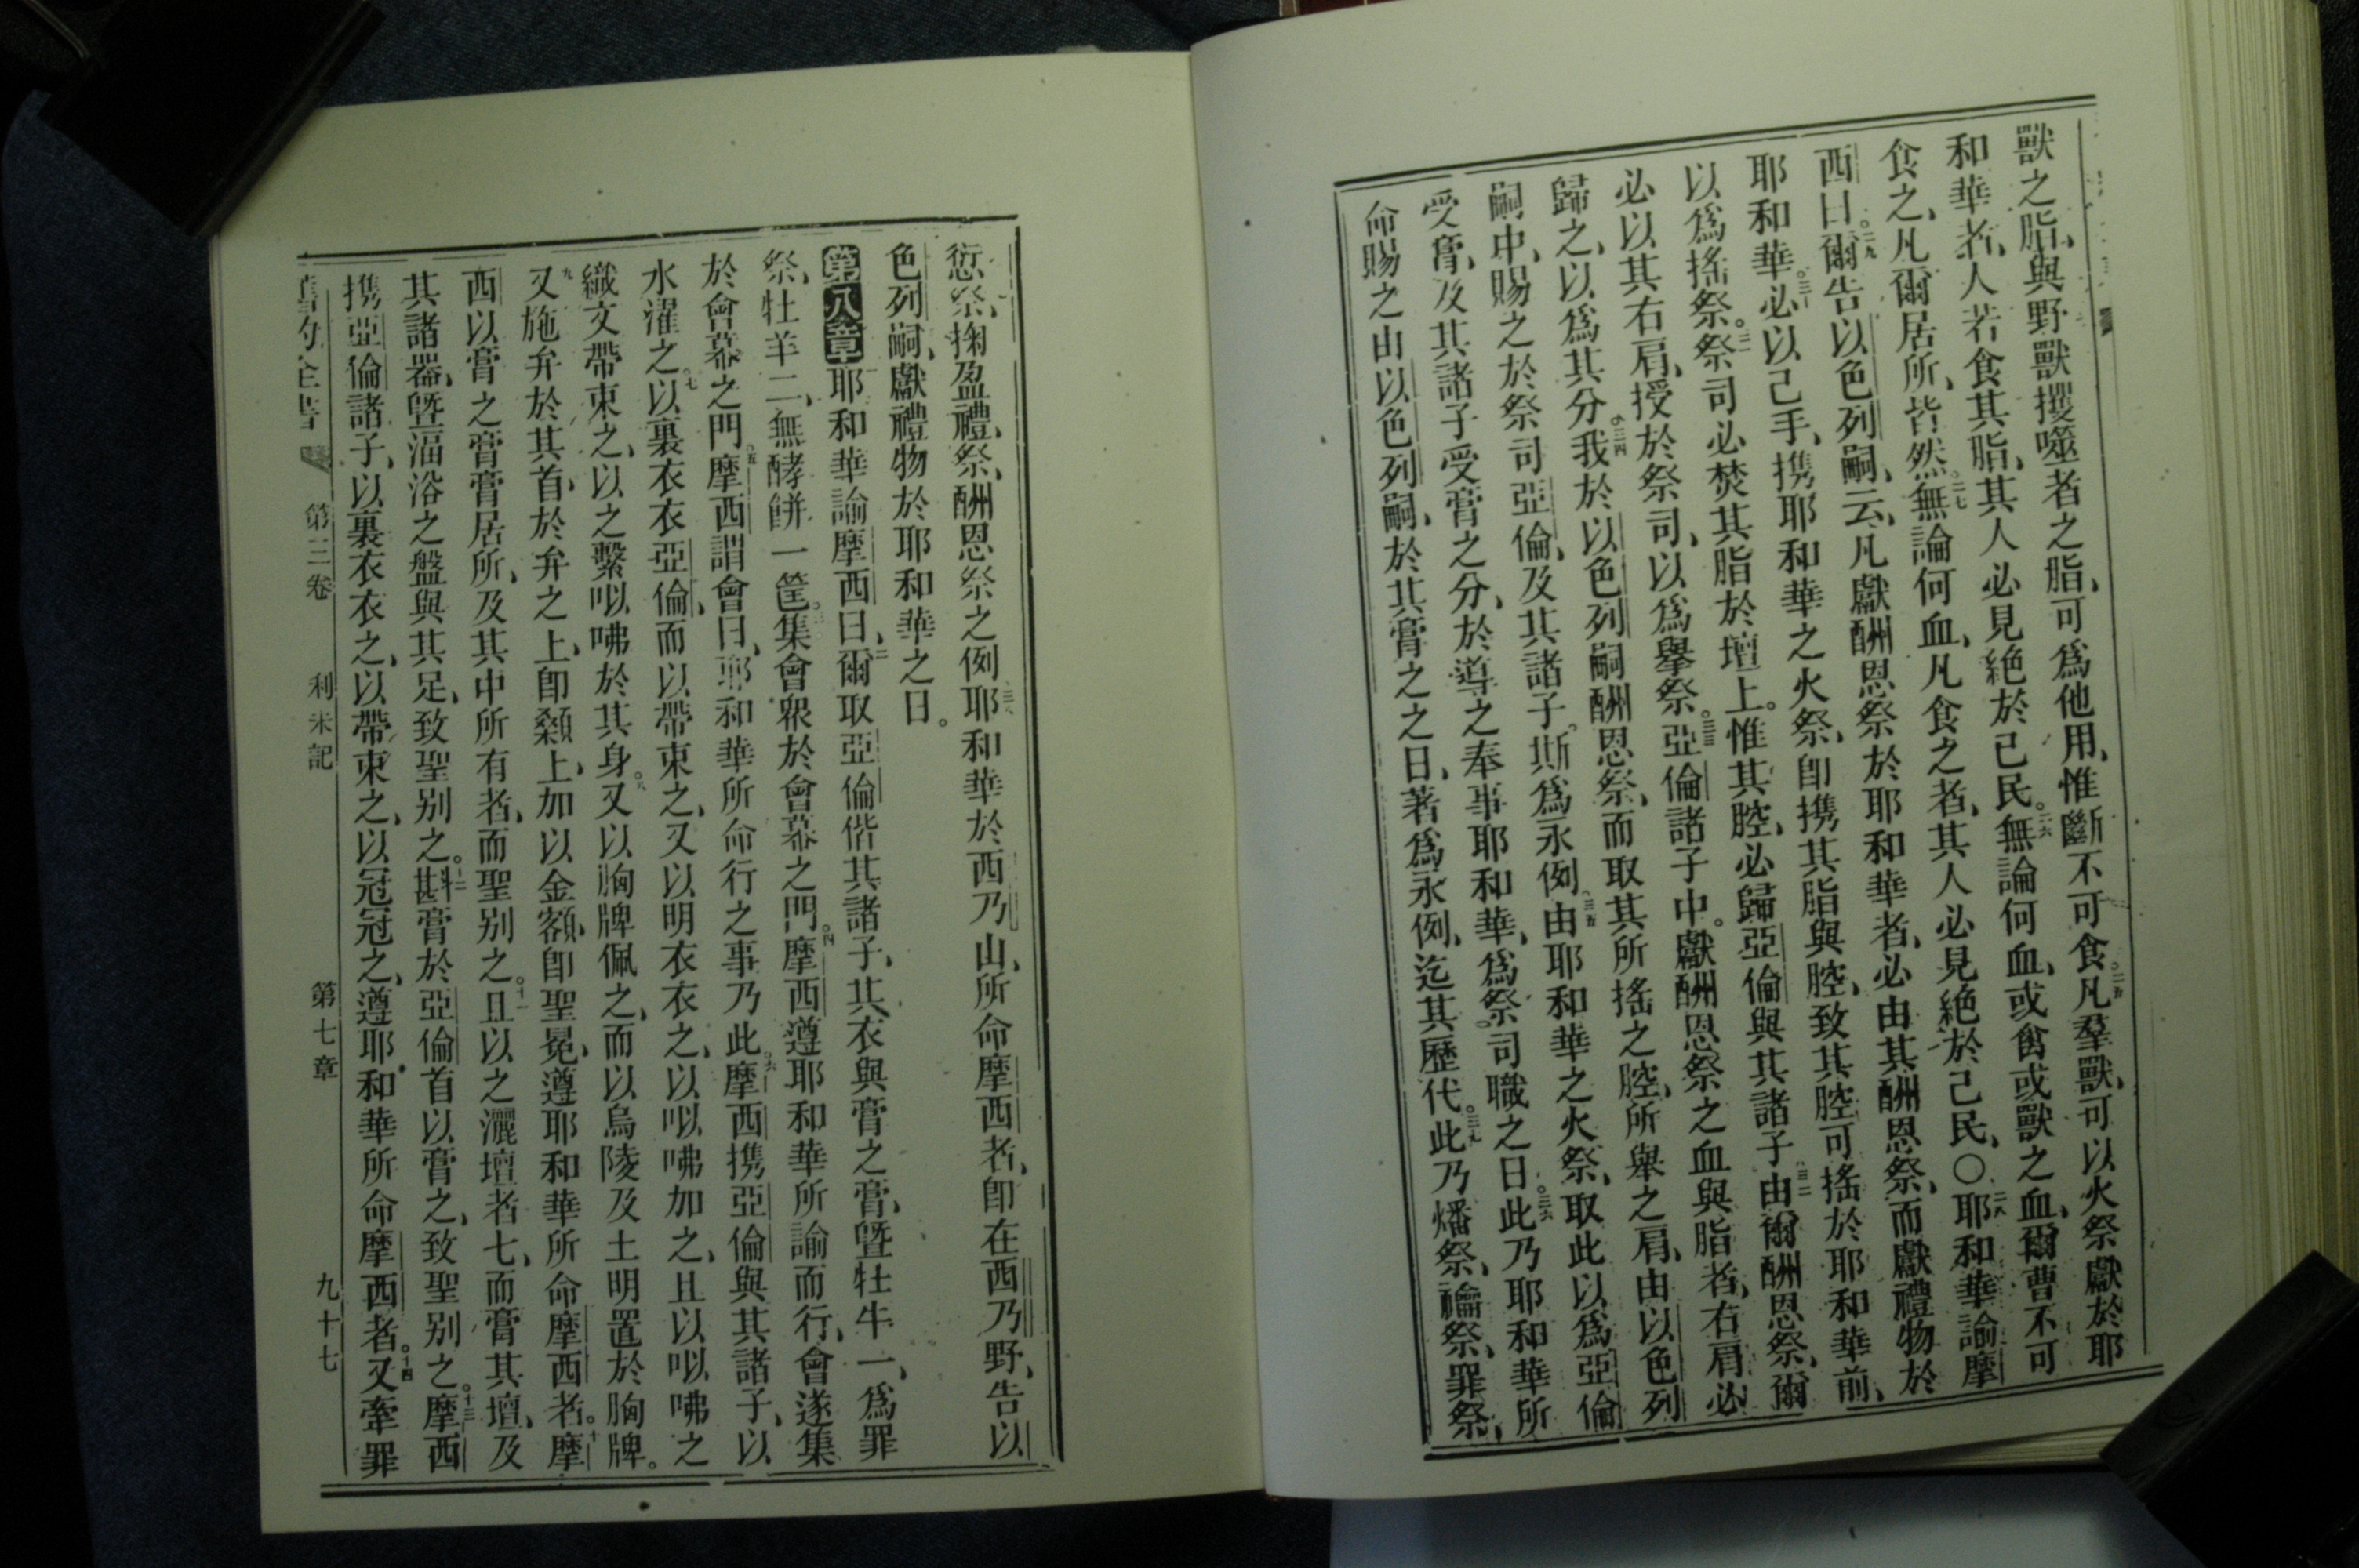 獸之脂、與野獸攫噬者之脂、可爲他用、惟斷不可食。二五凡羣獸、可以火祭獻於耶
和華者、人若食其脂、其人必見絕於己民。二六無論何血、或禽或獸之血、爾曹不可
食之、凡爾居所、皆然。二七無論何血、凡食之者、其人必見絕於己民、〇二八耶和華諭摩
西曰。二九爾告以色列嗣、云、凡獻酬恩祭於耶和華者、必由其酬恩祭、而獻禮物於
耶和華。三十必以己手、攜耶和華之火祭、卽攜其脂與腔、致其腔可搖於耶和華前、
以爲搖祭。三一祭司必焚其脂於壇上。惟其腔、必歸亞倫與其諸子。三二由爾酬恩祭、爾
必以其右肩、授於祭司、以爲擧祭。三三亞倫諸子中。獻酬恩祭之血與脂者、右肩必
歸之、以爲其分。三四我於以色列嗣酬恩祭、而取其所搖之腔、所擧之肩、由以色列
嗣中、賜之於祭司亞倫、及其諸子。斯爲永例。三五由耶和華之火祭、取此以爲亞倫
受膏、及其諸子受膏之分、於導之奉事耶和華、爲祭司職之日。三六此乃耶和華所
命賜之由以色列嗣、於其膏之之日、著爲永例、迄其歷代。三七此乃燔祭、禴祭、罪祭、
愆祭、掬盈禮、祭、酬恩祭之例三八耶和華於西乃山、所命摩西者、卽在西乃野、告以
色列嗣、獻禮物於耶和華之日。
第八章耶和華諭摩西曰、二爾取亞倫偕其諸子、其衣與膏之膏、曁牡牛一、爲罪
祭、牡羊二、無酵餅一筐。三集會眾於會幕之門。四摩西遵耶和華所諭而行、會遂集
於會幕之門。五摩西謂會曰、耶和華所命行之事乃此。六摩西攜亞倫與其諸子、以
水濯之。七以裏衣衣亞倫、而以帶束之、又以明衣衣之、以㕽咈加之、且以㕽咈之
織文帶束之、以之繫㕽咈於其身。八又以胸牌佩之、而以烏陵及土明置於胸牌。
九又施弁於其首、於弁之上、卽顙上、加以金額、卽聖冕、遵耶和華所命摩西者。十摩
西以膏之膏膏居所、及其中所有者、而聖别之。十一且以之灑壇者七、而膏其壇、及
其諸器、曁湢浴之盤與其足、致聖别之。十二斟膏於亞倫首以膏之、致聖别之。十三摩西
攜亞倫諸子、以裏衣衣之、以帶束之、以冠冠之、遵耶和華所命摩西者。十四又牽罪
舊約全書 第三卷 利未記 第七章 九十七